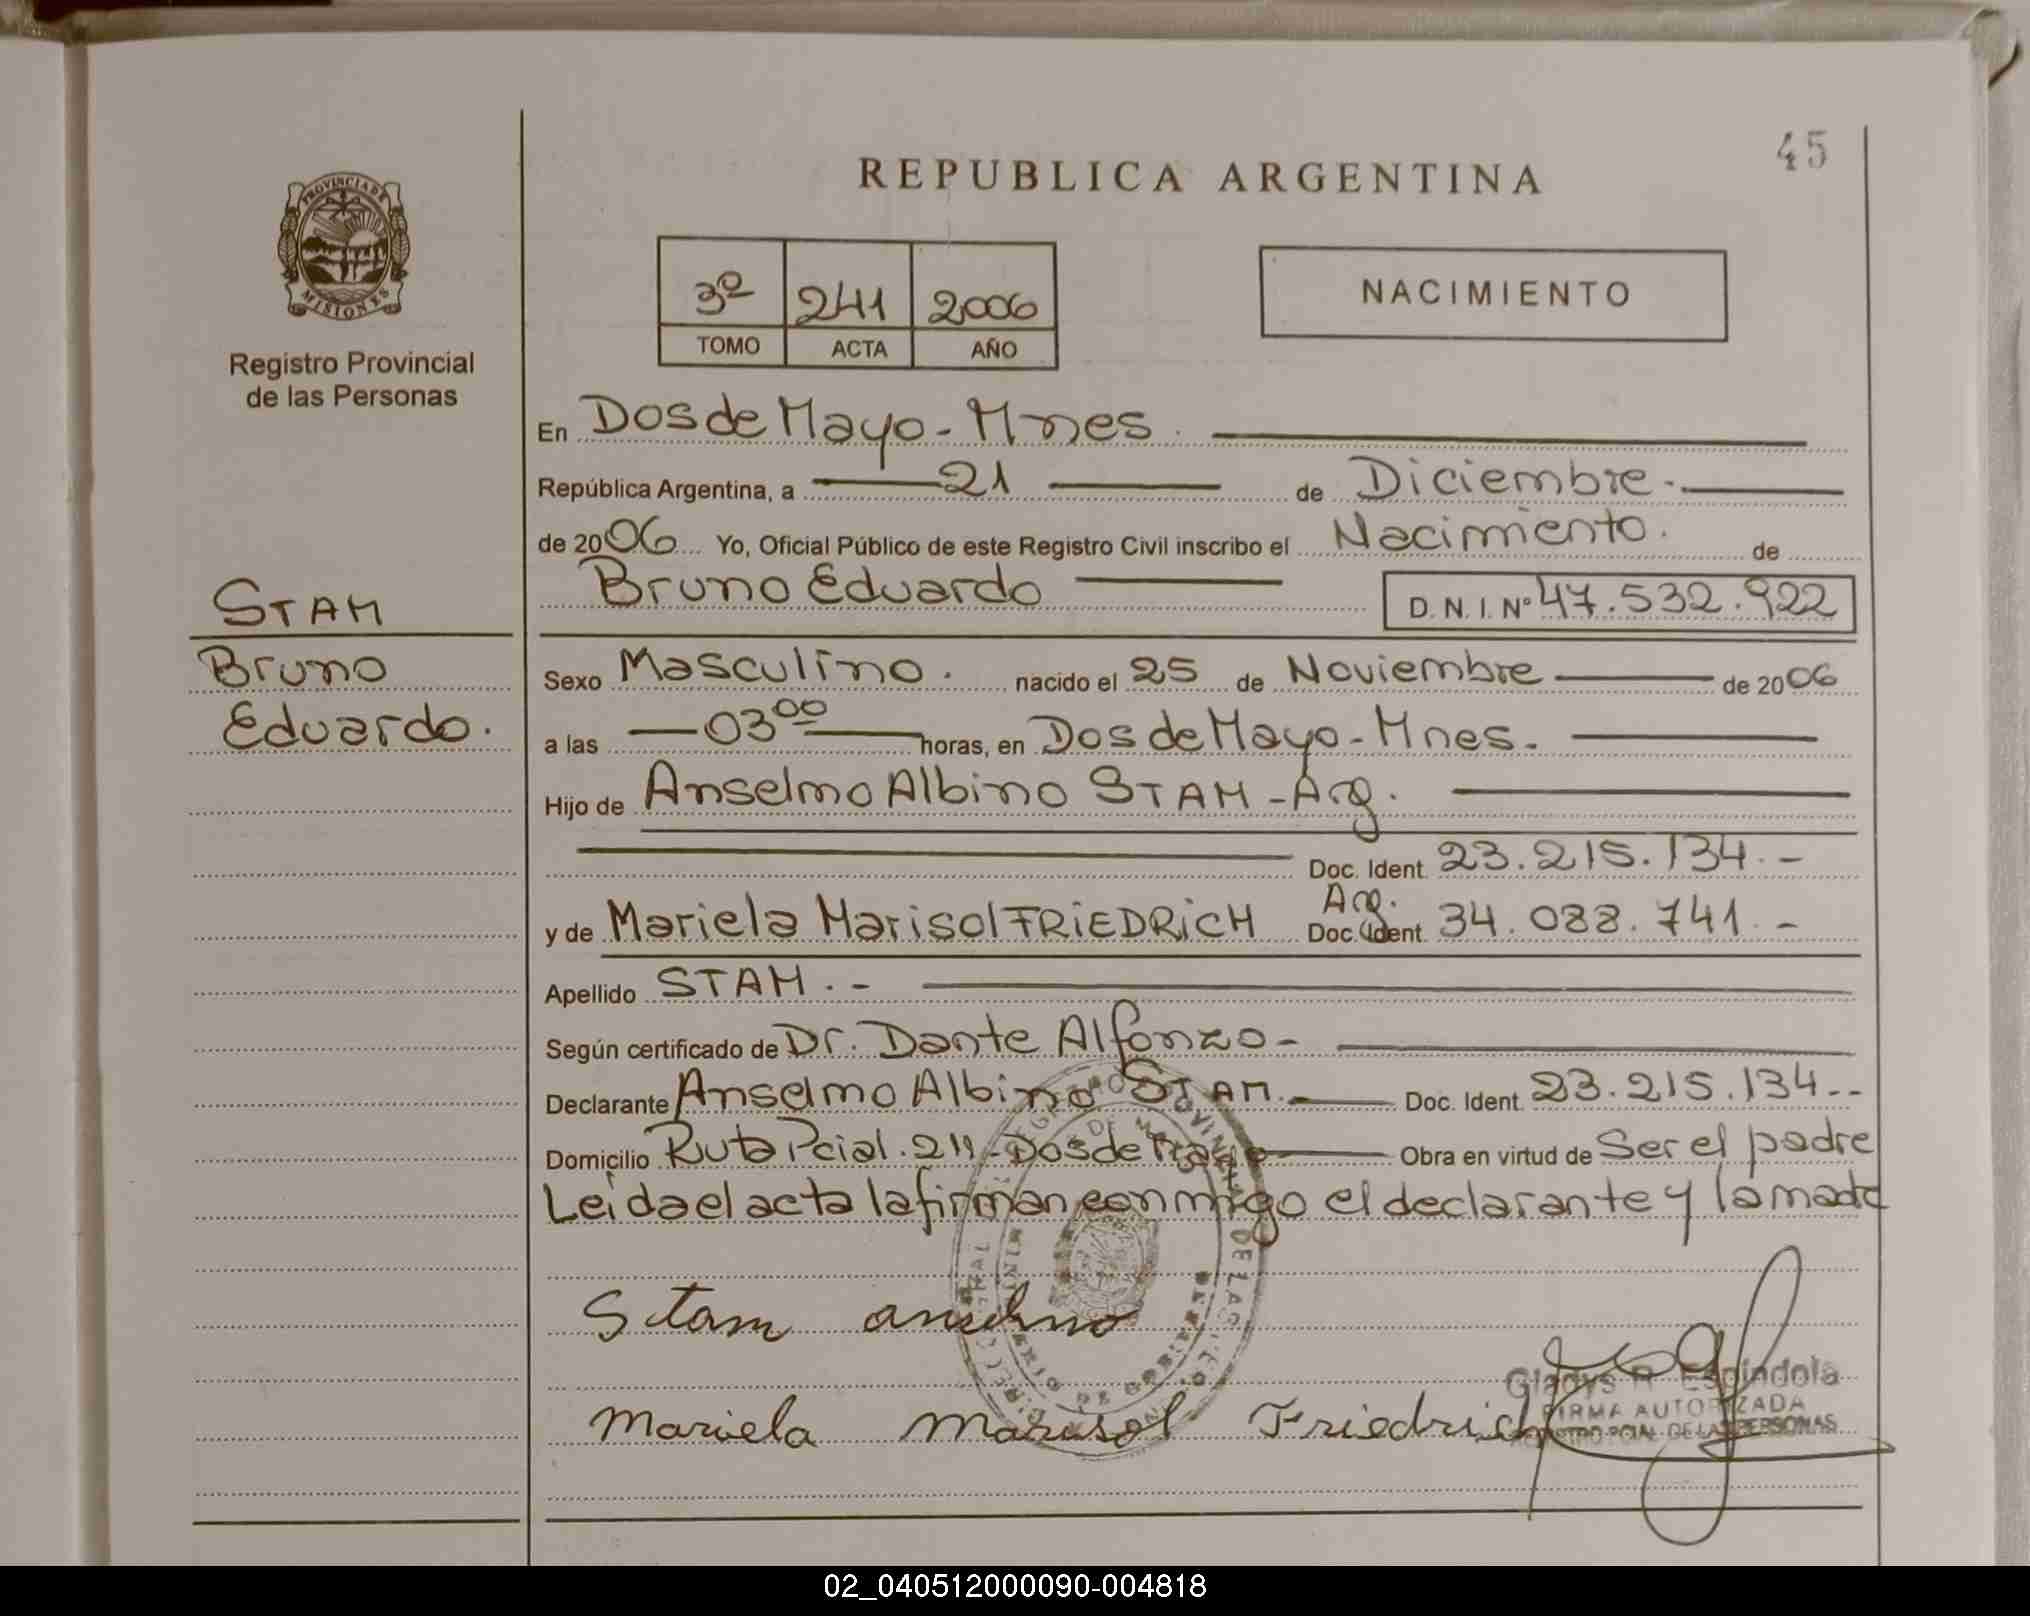 45
REPUBLICA ARGENTINA
PROVINCIA DE
MISIONES
Registro Provincial
de las Personas
3º 241 2006
TOMO ACTA AÑO
NACIMIENTO
En Dos de Mayo - Mnes.
República Argentina, a 21 de Diciembre.
de 2006 Yo, Oficial Público de este Registro Civil inscribo el Nacimiento. de
Bruno Eduardo D.N.I. Nº 47.532.922
STAM
Bruno
Eduardo.
Sexo Masculino. nacido el 25 de Noviembre de 2006
a las 03 00 horas, en Dos de Mayo - Mnes.
Hijo de Anselmo Albino STAM - Arg.
Doc. Ident. 23.215.134.-
y de Mariela Marisol FRIEDRICH Arg. Doc. Ident. 34.088.741.-
Apellido STAM.-
Según certificado de Dr. Dante Alfonzo-
Declarante Anselmo Albino STAM. Doc. Ident. 23.215.134.-
Domicilio Ruta Pcial. 211 - Dos de Mayo Obra en virtud de Ser el padre
Leida el acta la firman conmigo el declarante y la madre
Stam anselmo
Mariela Marisol Friedrich
Gladys R. Espindola
FIRMA AUTORIZADA
REGISTRO PCIAL. DE LAS PERSONAS
02_040512000090-004818